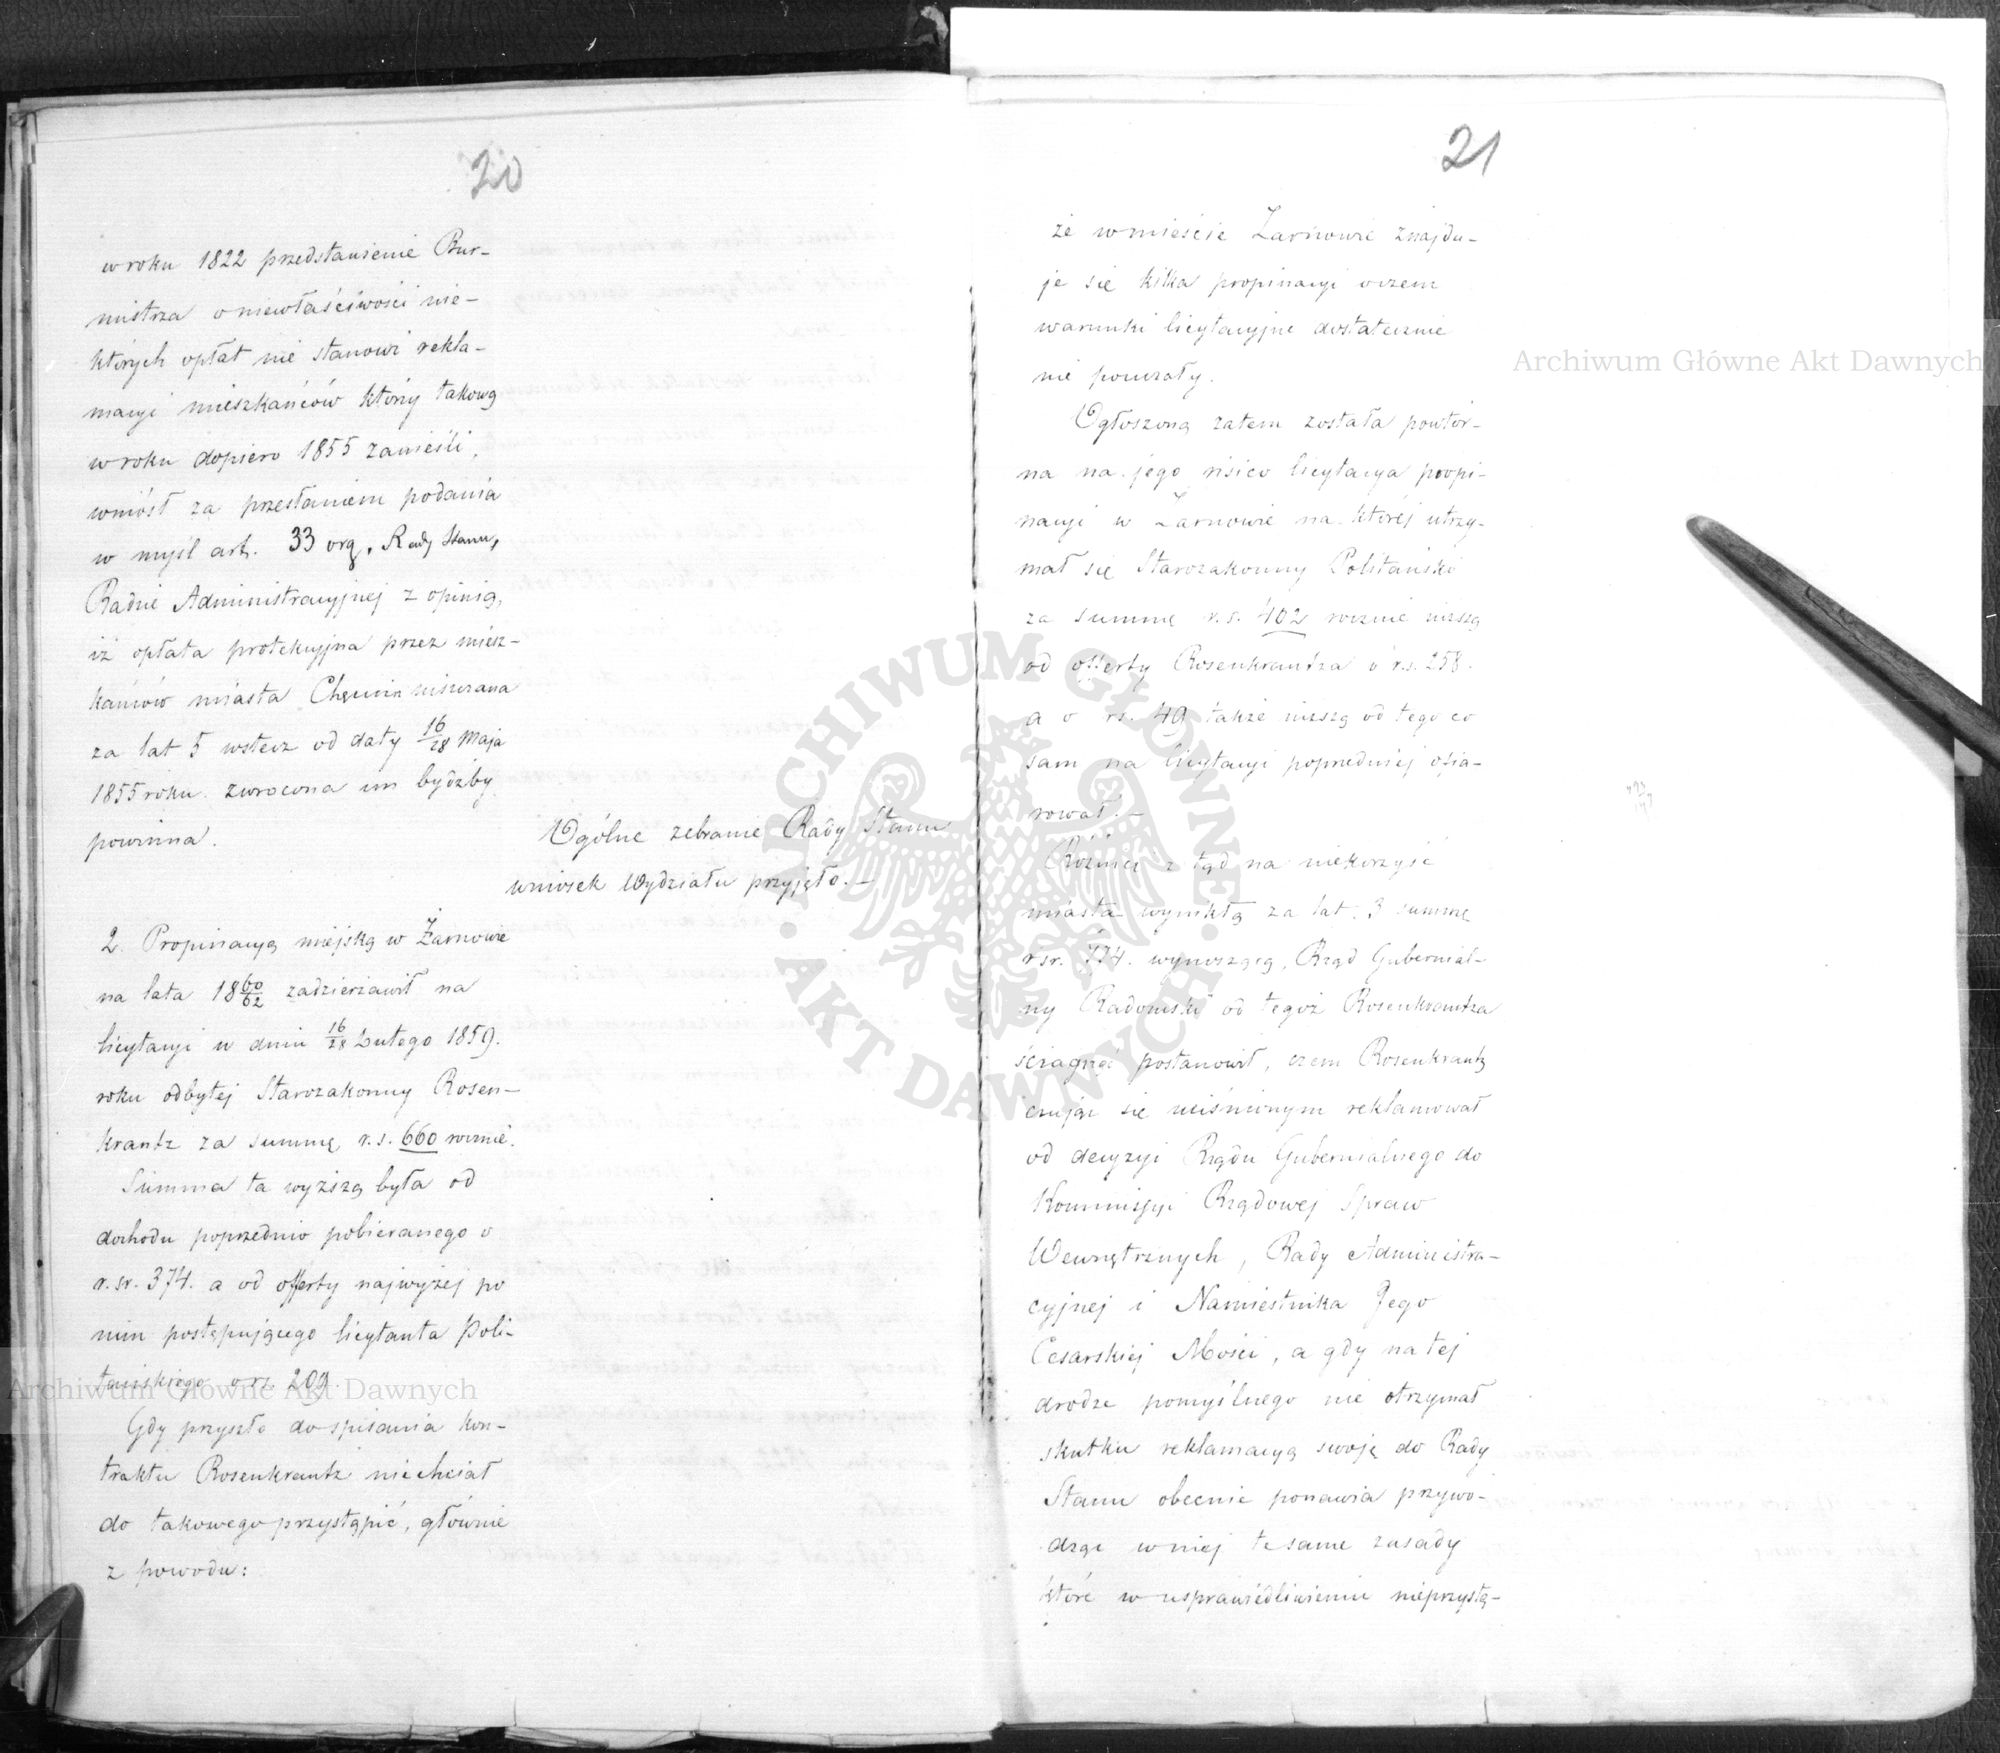 20
w roku 1822 przedstawienie Bur-
mistrza o niewłaściwości nie-
których opłat nie stanowi rekla-
macyi mieszkańców którzy takową
w roku dopiero 1855 zanieśli,
wniósł za przesłaniem podania
w myśl art. 33 org. Rady Stanu,
Radzie Administracyjnej z opinią,
iż opłata protekcyjna przez miesz-
kańców miasta Chęcin uiszczana
za lat 5 wstecz od daty 16/28 Maja
1855 roku zwrócona im bydźby
powinna.
Ogólne zebranie Rady Stanu
wniosek Wydziału przyjęło. –
2. Propinacyą miejską w Żarnowie
na lata 18 60/62 zadzierżawił na
licytacyi w dniu 16/28 Lutego 1859.
roku odbytej Starozakonny Rosen-
krantz za summę r.s. 660 rocznie.
Summa ta wyższą była od
dochodu poprzednio pobieranego o
r.sr. 374. a od offerty najwyżej po
nim postępującego licytanta Poli-
tańskiego o rs. 209.
Gdy przyszło do spisania kon-
traktu Rosenkrantz nie chciał
do takowego przystąpić, głównie
z powodu:
21
że w mieście Żarnowie znajdu-
je się kilka propinacyi o czem
warunki licytacyjne dostatecznie
nie pouczały.
Ogłoszoną zatem została powtór-
na na jego risico licytacya propi-
nacyi w Żarnowie na której utrzy-
mał się Starozakonny Politański
za summę r.s. 402 rocznie niższą
od offerty Rosenkrantza o r.s. 258.
a o rs. 49 także niższą od tego co
sam na licytacyi poprzedniej ofia-
rował. –
Różnicę z tąd na niekorzyść
miasta wynikłą za lat 3 summę
rsr. 774. wynoszącą, Rząd Gubernial-
ny Radomski od tegoż Rosenkrantza
ściągnąć postanowił, czem Rosenkrantz
czując się uciśnionym reklamował
od decyzyi Rządu Gubernialnego do
Kommissyi Rządowej Spraw
Wewnętrznych, Rady Administra-
cyjnej i Namiestnika Jego
Cesarskiej Mości, a gdy na tej
drodze pomyślnego nie otrzymał
skutku reklamacyą swoję do Rady
Stanu obecnie ponawia przywo-
dząc w niej te same zasady
które w usprawiedliwieniu nieprzystą-
Archiwum Główne Akt Dawnych
Archiwum Główne Akt Dawnych
ARCHIWUM GŁÓWNE AKT DAWNYCH